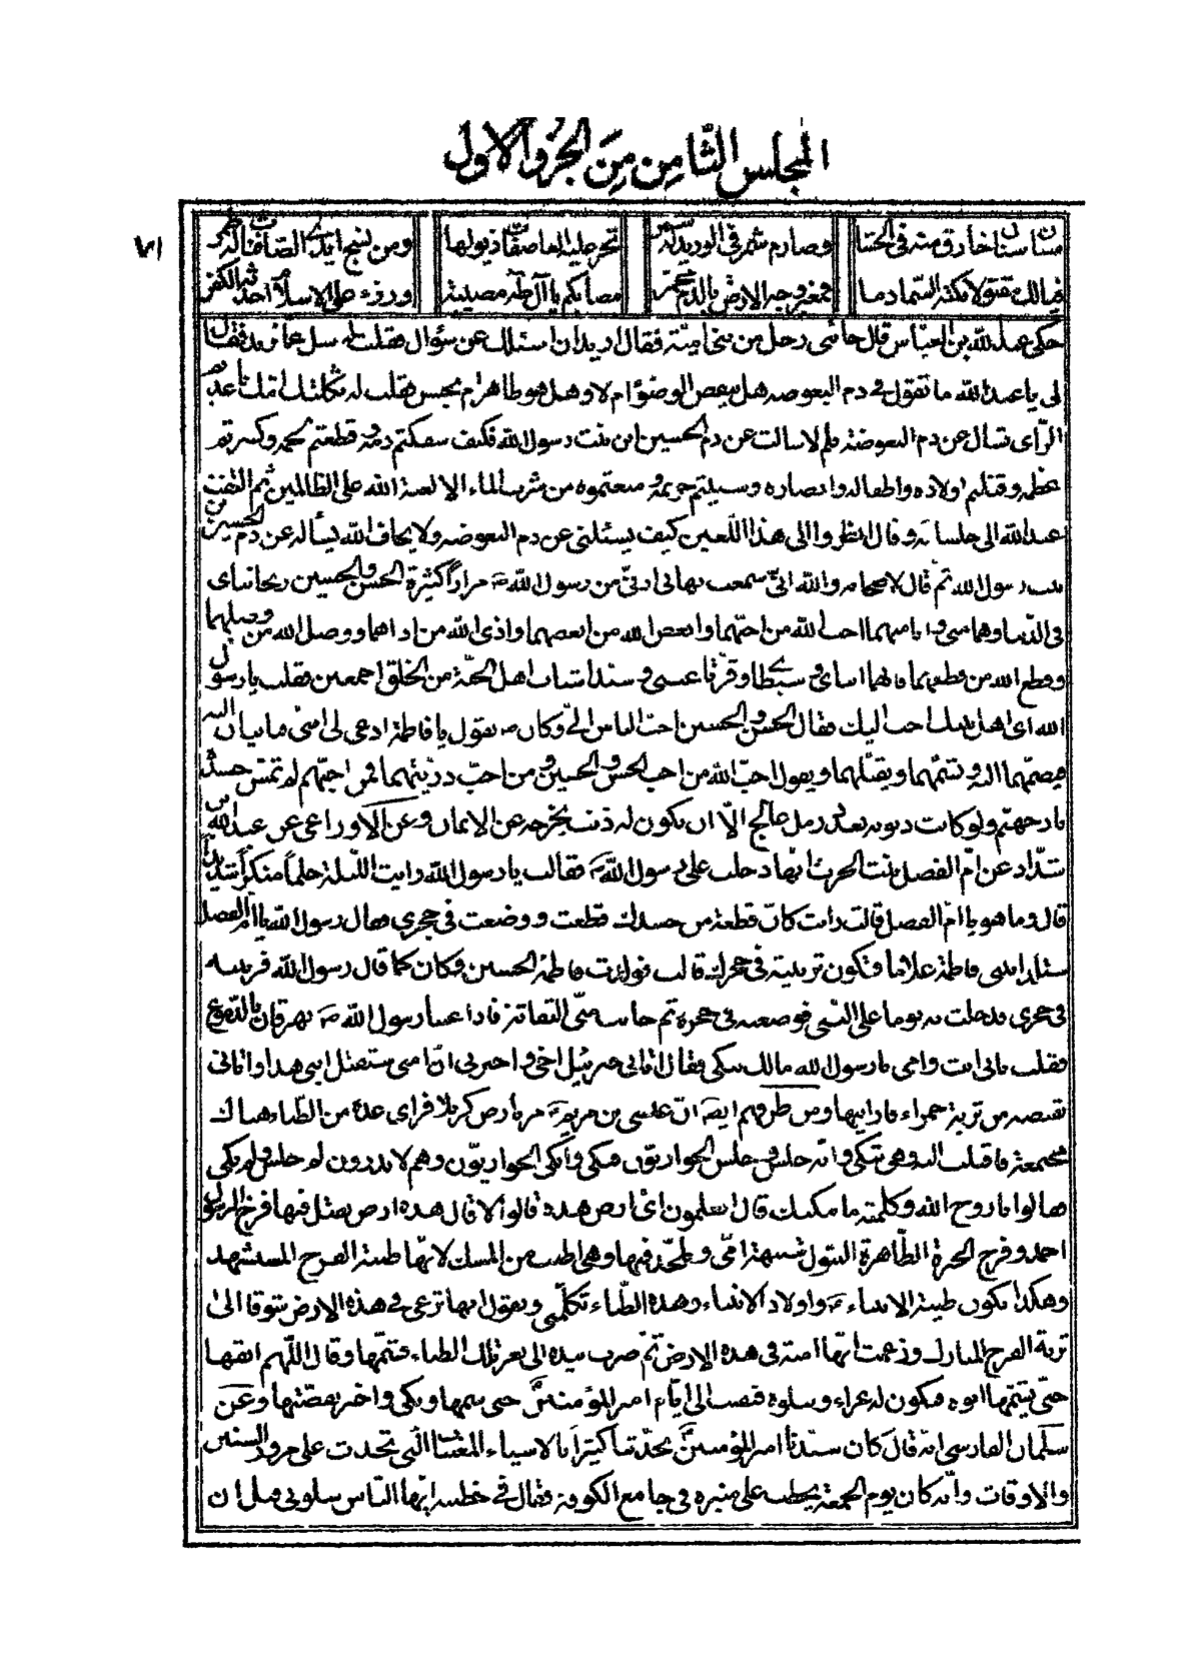 المجلس الثّامن مِنَ الجُزءِ الاول
٧١
سنان سنان خارق منه فى الحشا وصارم شمر فى الوريد تجر عليه العاصفات ذيولها ومن نسج ايدى الصافنات له
فمالك مقتولا بكته السما دما فمغبر وجه الارض بالدم محمر مصابكم يا آل طه مصيبة ورزء على الاسلام احدثه الكفر
حكى عبد الله بن العباس قال جائنى رجل من بنى امية فقال اريد ان اسئلك عن سؤال فقلت له سل عما تريد فقال
لى يا عبد الله ما تقول فى دم البعوضه هل ينقض الوضوء ام لا وهل هو طاهر ام نجس فقلت له ثكلتك امك يا عديم
الرّاى تسال عن دم البعوضة فلم لا سالت عن دم الحسين ابن بنت رسول الله فكيف سفكتم دمه و قطعتم لحمه وكسرتم
عظمه وقتلتم اولاده واطفاله وانصاره وسبيتم حريمه و منعتموه من شرب الماء الا لعنة الله على الظالمين ثم التفت
عبد الله الى جلسائه وقال انظروا الى هذا اللّعين كيف يسئلنى عن دم البعوضه ولا يخاف الله يسأله عن دم الحسين بن
بنت رسول الله ثم قال لاصحابه والله انى سمعت بهاتى اذنىّ من رسول الله ص مراراً كثيرة الحسن والحسين ريحانتاى
فى الدنيا وهما منى وانا منهما احب الله من احبّهما وابغض الله من ابغضهما واذى الله من اذاهما ووصل الله من وصلهما
وقطع الله من قطعهما فانهما ابناى و سبطاى وقرتا عينى و سيدا شباب اهل الجنّة من الخلق اجمعين فقلت يا رسول
الله اى اهل بيتك احب اليك فقال الحسن والحسين احب الناس الىّ وكان ص يقول يا فاطمة ادعى لى ابنىّ فياتيان اليه
فيضمّهما اليه و يشمّهما ويقبّلهما ويقول احبّ الله من احب الحسن والحسين و من احبّ ذريتهما فمن احبّهم لم تمس جسده
نار جهنم ولو كانت ذنوبه بعدد رمل عالج الاّ ان يكون له ذنب يخرجه عن الايمان وعن الاوزاعى عن عبد الله بن
شدّاد عن امّ الفضل بنت الحرث انّها دخلت على رسول الله ص فقالت يا رسول الله رايت الليلة حلماً منكراً شديداً
قال وما هو يا امّ الفضل قالت رايت كانّ قطعة من جسدك قطعت ووضعت فى حجرى فقال رسول الله يا ام الفضل
ستلد ابنتى فاطمة غلاما فتكون تربيته فى حجرك قالت فولدت فاطمة الحسين فكان كما قال رسول الله فربيته
فى حجرى فدخلت به يوما على النبى فوضعته فى حجره ثم حانت منّى التفاتة فاذا عينا رسول الله ص تهرقان بالدّموع
فقلت بابى انت وامى يا رسول الله مالك تبكى فقال اتانى جبرئيل اخى واخبرنى انّ امتى ستقتل ابنى هذا واتانى
بقبضة من تربة حمراء فارانيها ومن طرقهم ايضا ان عيسى بن مريم ع مر بارض كربلا فراى عدة من الظباء هناك
مجتمعة فاقبلت اليه وهى تبكى وانه جلس و جلس الحواريّون فبكى وابكى الحواريّون وهم لا يدرون لم جلس ولم بكى
فقالوا يا روح الله وكلمته ما يبكيك قال اتعلمون اىّ ارض هذه قالوا لا قال هذه ارض يقتل فيها فرخ الرسول
احمد و فرخ الحرة الطّاهرة البتول شبيهة امّى و يلحّد فيها وهى اطيب من المسك لانّها طينة الفرخ المستشهد
وهكذا تكون طينة الانبياء ع واولاد الانبياء وهذه الظباء تكلّمنى و تقول انها ترعى فى هذه الارض شوقا الى
تربة الفرخ المبارك وزعمت انّها امنة فى هذه الارض ثم ضرب بيده الى بعر تلك الظباء فشمّها وقال اللّهم ابقها
حتّى يشمّها ابوه فيكون له عزاء و سلوة فبقيت الى ايّام امير المؤمنين حتى شمها وبكى واخبر بقصّتها وعَن
سلمان الفارسى انه قالَ كان سيّدنا امير المؤمنين يحدّثنا كثيراً بالاشياء المغيبات التى تحدث على مرور السنين
والاوقات وانّه كان يوم الجمعة يخطب على منبره فى جامع الكوفة فقال فى خطبته ايّها النّاس سلونى قبل ان